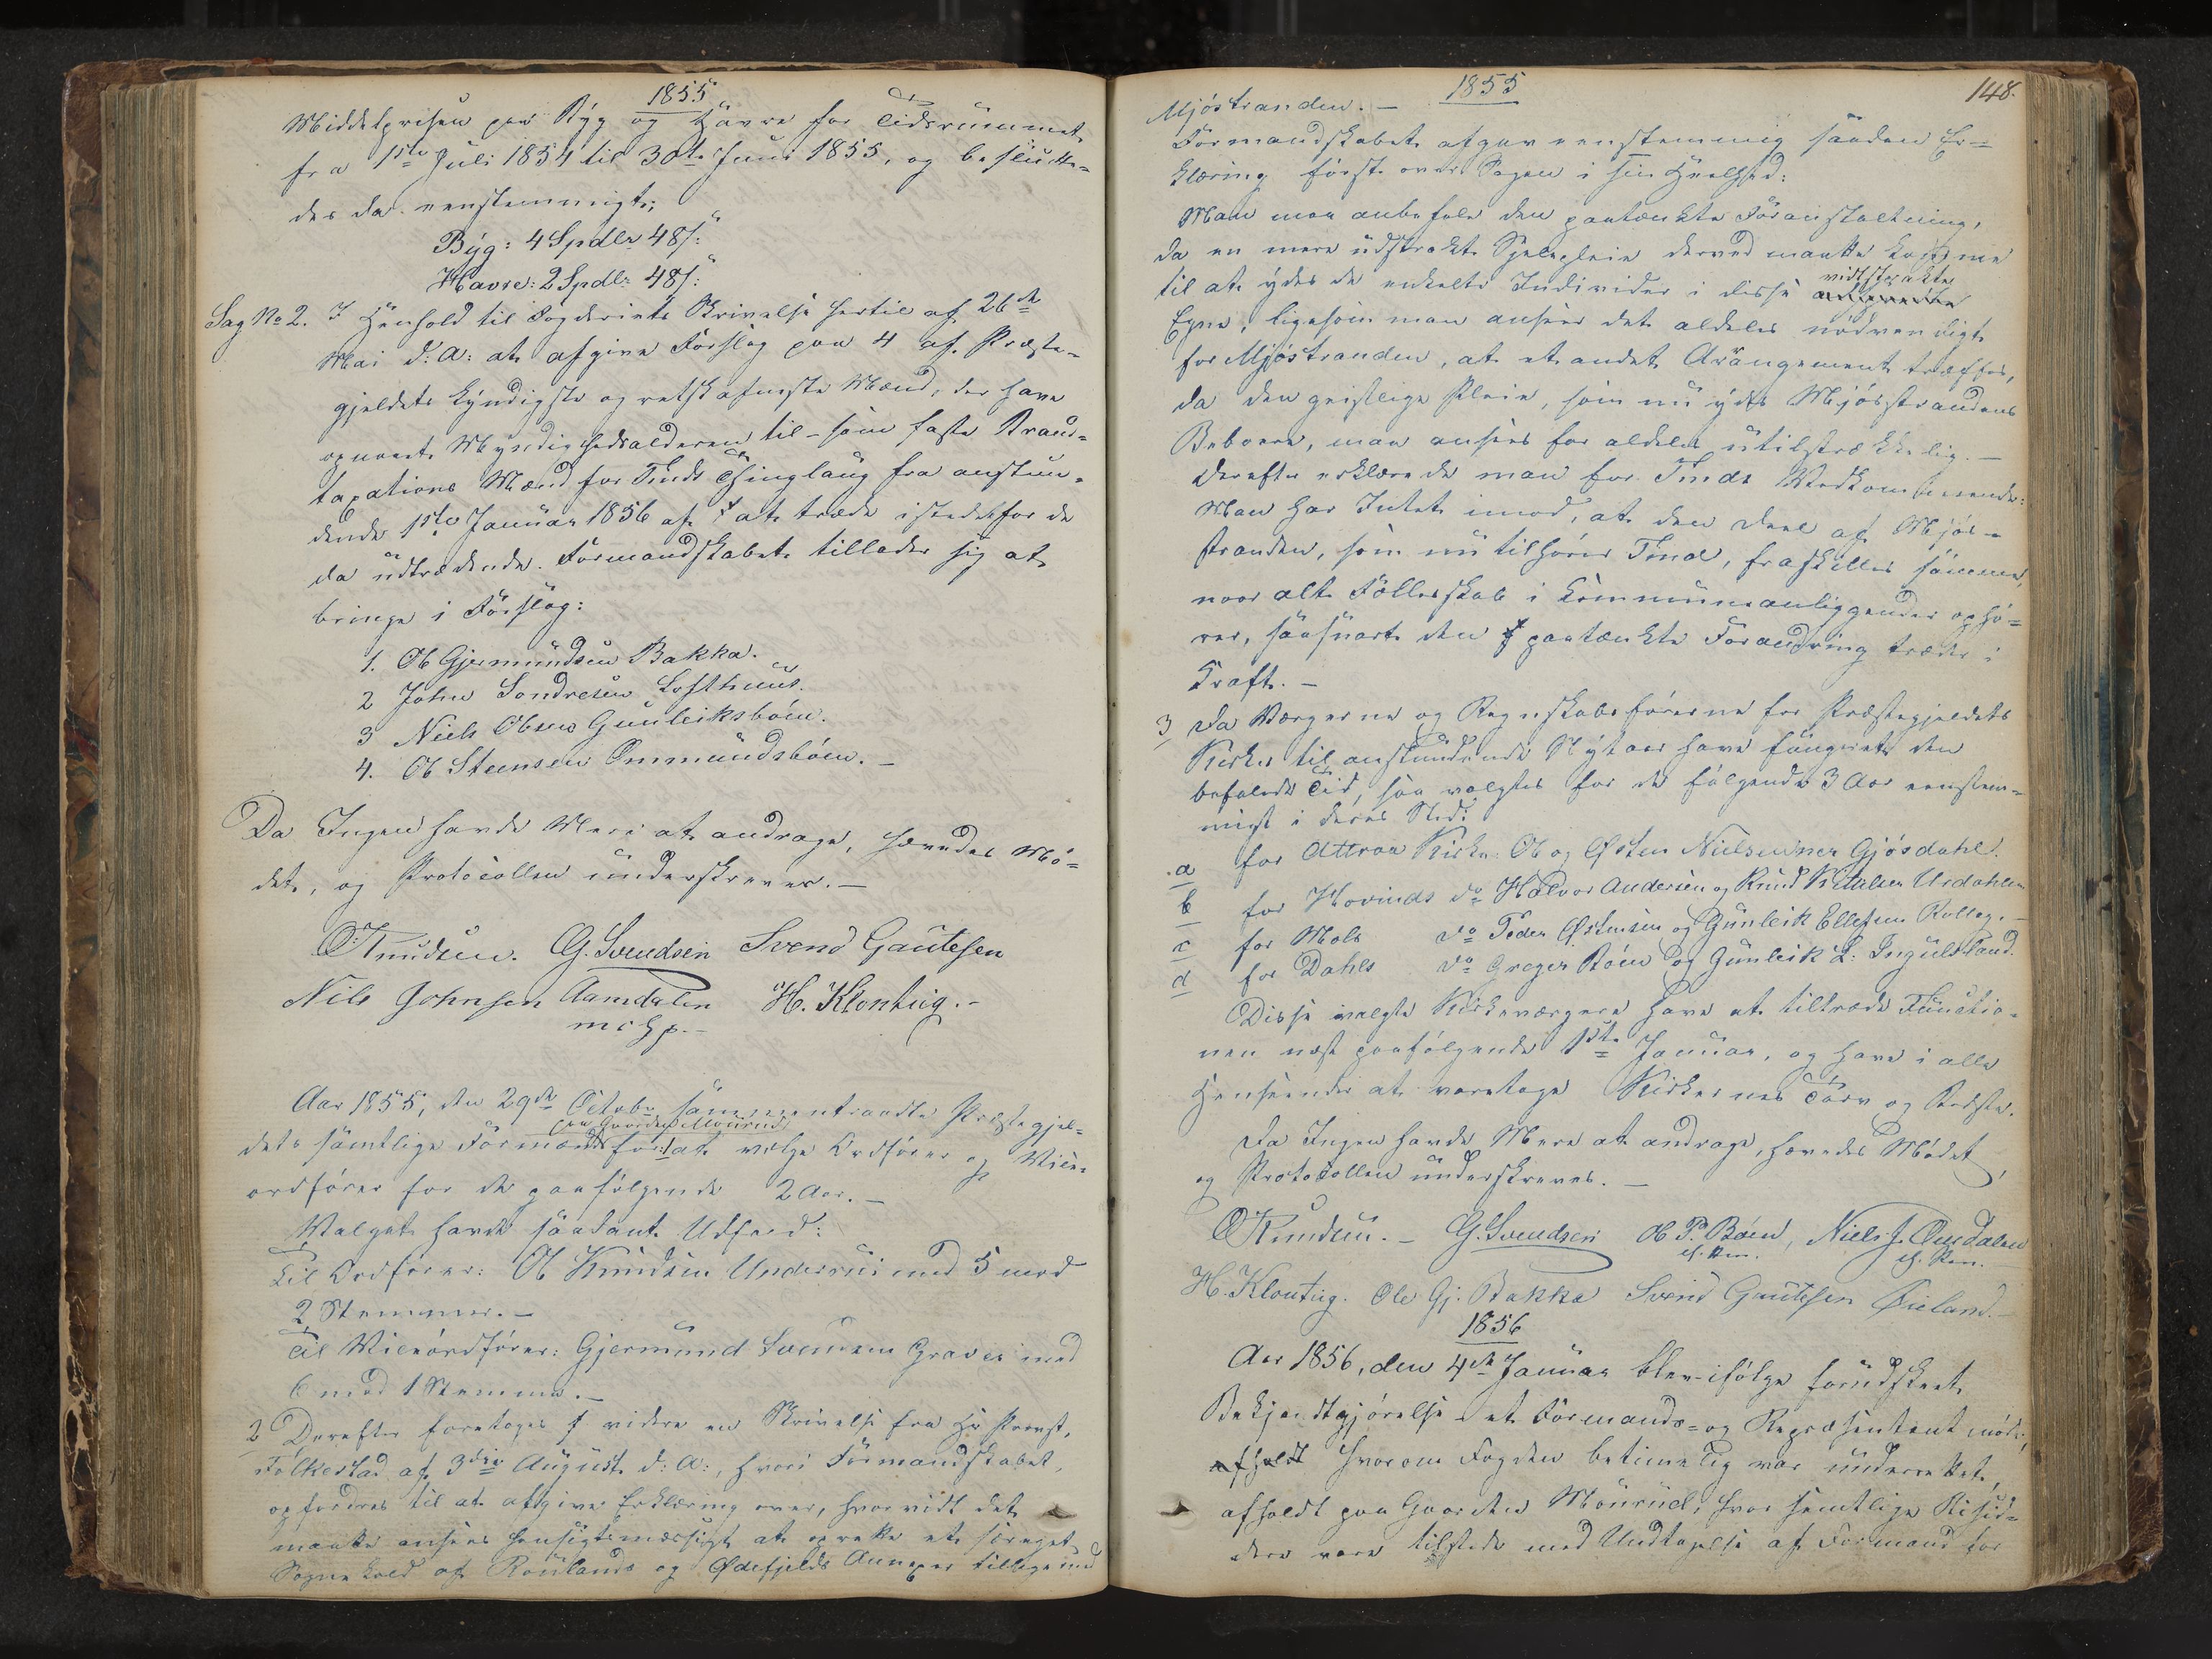 1855
Middelprisen paa Byg og Havre for Tidsrummet
fra 1ste Juli 1854 til 30te Juni 1855, og beslutte-
des da eenstemmigt:
Byg: 4 Spdlr 48 s:
Havre: 2 Spdlr 48 s:
Sag No 2. I Henhold til Fogderiets Skrivelse hertil af 26de
Mai d: A: at afgive Forslag paa 4 af Præste-
gjeldets kyndigste og retskafneste Mænd, der have
opnaaet Myndighedsalderen til - som faste Brand-
taxations Mænd for Tinds Thinglaug fra anstun-
dende 1ste Januar 1856 af at træde istedetfor de
da udtrædende. Formandskabet tillader sig at
bringe i Forslag:
1. Ol Gjermundsen Bakka.
2 John Sondresen Lofthuus.
3 Niels Olsen Gunleiksbøen.
4. Ol Steensen Ommundsbøen. -
Da Ingen havde Mere at andrage, hævedes Mø-
det, og Protocollen underskreves. -
O Knudsen. G. Svendsen Svend Gautesen
Nils Johnsen Aamdalen H. Klontiig. -
m i h p. -
Aar 1855, den 29de Octobr sammentraadte Præstegjel-
paa Gaarden Mourud
dets samtlige Formænd for at vælge Ordfører og Vice-
ordfører for de paafølgende 2 Aar. -
Valget havde saadant Udfald:
Til Ordfører: Ol Knudsen Undersui med 5 mod
2 Stemmer. -
Til Viceordfører: Gjermund Svendsen Graver med
6 mod 1 Stemme. -
2 Derefter foretoges videre en Skrivelse fra Hr Provst,
Folkestad af 3die August d: A:, hvori Formandskabet,
opfordres til at afgive Erklæring over, hvorvidt det
maatte ansees hensigtsmæssigt at oprette et særeget
Sognekald af Roulands og Ødefjelds Annexer tilligemed
1855 148.
Mjøstranden. -
Formandskabet afgav eenstemmig saadan Er-
klæring først over Sagen i sin Heelhed:
Man maa anbefale den paatænkte Foranstaltning,
da en mere udstrakt Sjelepleie derved maatte komme
vidtstrakte
til at ydes de enkelte Individer i disse
Egne, ligesom man anseer det aldeles nødvendigt
for Mjøstranden, at et andet Arrangement træffes,
da den geistlige Pleie, som nu ydes Mjøstrandens
Beboere, maa ansees for aldeles utilstrækkelig. -
Derefter erklærede man for Tinds Vedkommende:
Man har Intet imod, at den Deel af Mjøs-
stranden, som nu tilhører Tind, fraskilles samme,
naar alt Fællesskab i Communeanliggender ophø-
rer, saasnart den paatænkte Forandring træder i
Kraft. -
3 Da Værgerne og Regnskabsførerne for Præstegjeldets
Kirker til anstundende Nytaar have fungeret den
befalede Tid, saa valgtes for de følgende 3 Aar eenstem-
migt i deres Sted:
a for Attraa Kirke: Ol og Østen Nielsenner Gjøsdahl.
b for Hovinds do Halvor Andersen og Knud Kittilsen Urdahlen
c for Mæls do Peder Østensen og Gunleik Ellefsen Rolleg. -
d for Dahls do Greger Bøen og Gunleik L: Ingulsland.
Disse valgte Kirkeværgere have at tiltræde Functio-
nen næst paafølgende 1ste Januar, og have i alle
Henseender at varetage Kirkernes Tarv og Bedste.
Da Ingen havde Mere at andrage, hævedes Mødet,
og Protocollen underskreves. -
O Knudsen. - G. Svendsen Ol P. Bøen, Niels J. Omdalen
H. Klontiig. Ole Gj. Bakka Svend Gautesen Øieland. -
1856
Aar 1856, den 4de Januar blev ifølge forudskeet
Bekjendtgjørelse et Formands- og Repræsentantmøde,
afholdt hvorom Fogden betimelig var underrettet,
afholdt paa Gaarden Mourud, hvor samtlige Besid-
dere vare tilstede med Undtagelse af Formand for